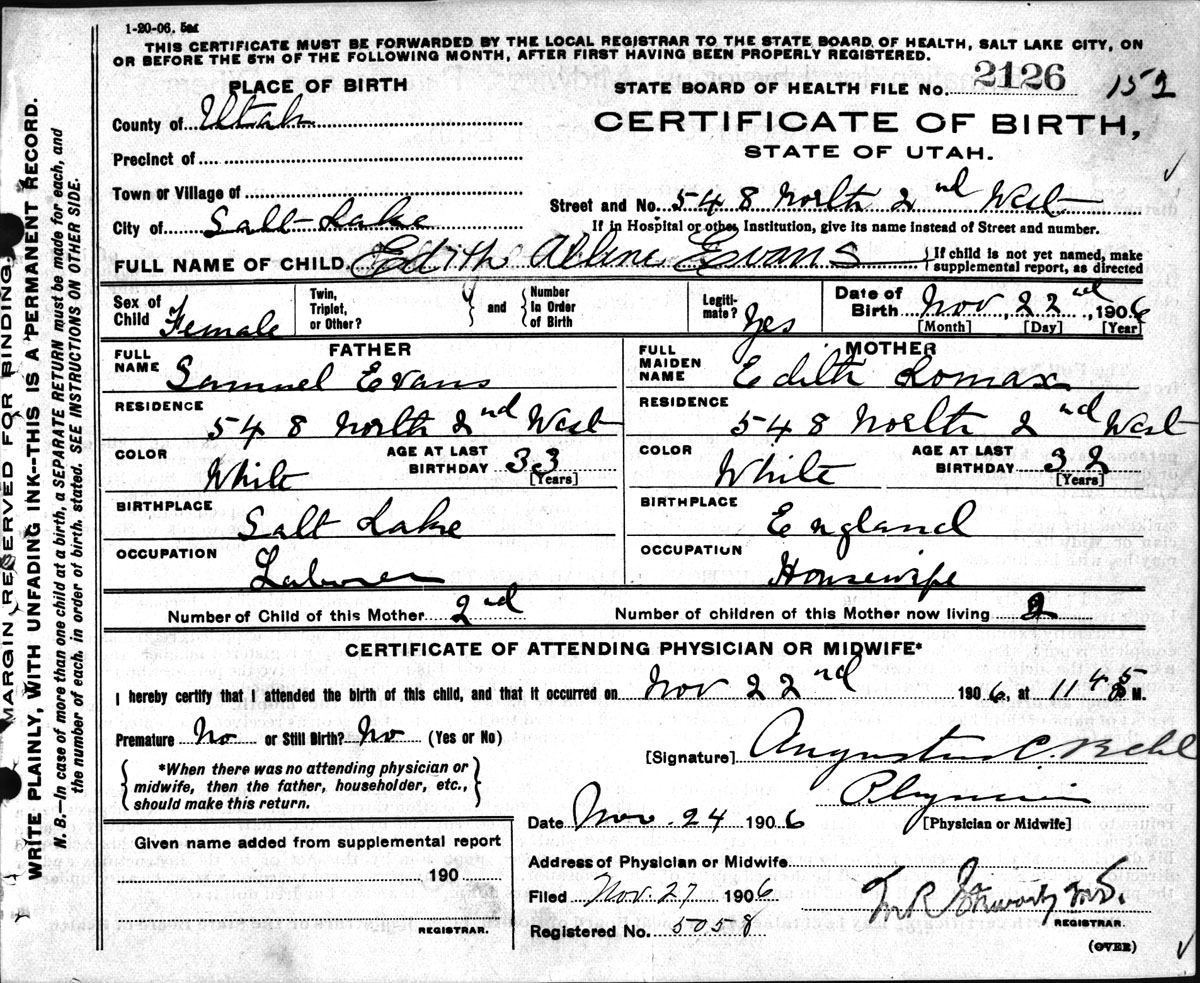 1-20-06. 5M
THIS CERTIFICATE MUST BE FORWARDED BY THE LOCAL REGISTRAR TO THE STATE BOARD OF HEALTH, SALT LAKE CITY, ON
OR BEFORE THE 5TH OF THE FOLLOWING MONTH, AFTER FIRST HAVING BEEN PROPERLY REGISTERED.
PLACE OF BIRTH
STATE BOARD OF HEALTH FILE No. 2126 152
County of Utah
CERTIFICATE OF BIRTH,
STATE OF UTAH.
Precinct of
Town or Village of
Street and No. 548 North 2nd West
City of Salt Lake
If in Hospital or other Institution, give its name instead of Street and number.
FULL NAME OF CHILD Edith Allene Evans
If child is not yet named, make
supplemental report, as directed
Sex of
Child Female
Twin,
Triplet,
or Other?
and
Number
in Order
of Birth
Legiti-
mate? Yes
Date of
Birth Nov 22nd, 1906
[Month] [Day] [Year]
FATHER
FULL
NAME Samuel Evans
RESIDENCE
548 North 2nd West
COLOR White
AGE AT LAST
BIRTHDAY 33
[Years]
BIRTHPLACE
Salt Lake
OCCUPATION
Laborer
MOTHER
FULL
MAIDEN
NAME Edith Lomax
RESIDENCE
548 North 2nd West
COLOR White
AGE AT LAST
BIRTHDAY 32
[Years]
BIRTHPLACE
England
OCCUPATION
Housewife
Number of Child of this Mother 2nd Number of children of this Mother now living 2
CERTIFICATE OF ATTENDING PHYSICIAN OR MIDWIFE*
I hereby certify that I attended the birth of this child, and that it occurred on Nov 22nd 1906, at 11 45 M.
Premature No or Still Birth? No (Yes or No)
[Signature] Augustus C. Behl
*When there was no attending physician or
midwife, then the father, householder, etc.,
should make this return.
Physician
[Physician or Midwife]
Date Nov. 24 1906
Given name added from supplemental report
190
REGISTRAR.
Address of Physician or Midwife
Filed Nov. 27 1906
REGISTRAR.
Registered No. 5058
(OVER)
MARGIN RESERVED FOR BINDING.
WRITE PLAINLY, WITH UNFADING INK--THIS IS A PERMANENT RECORD.
N. B.—In case of more than one child at a birth, a SEPARATE RETURN must be made for each, and
the number of each, in order of birth, stated. SEE INSTRUCTIONS ON OTHER SIDE.